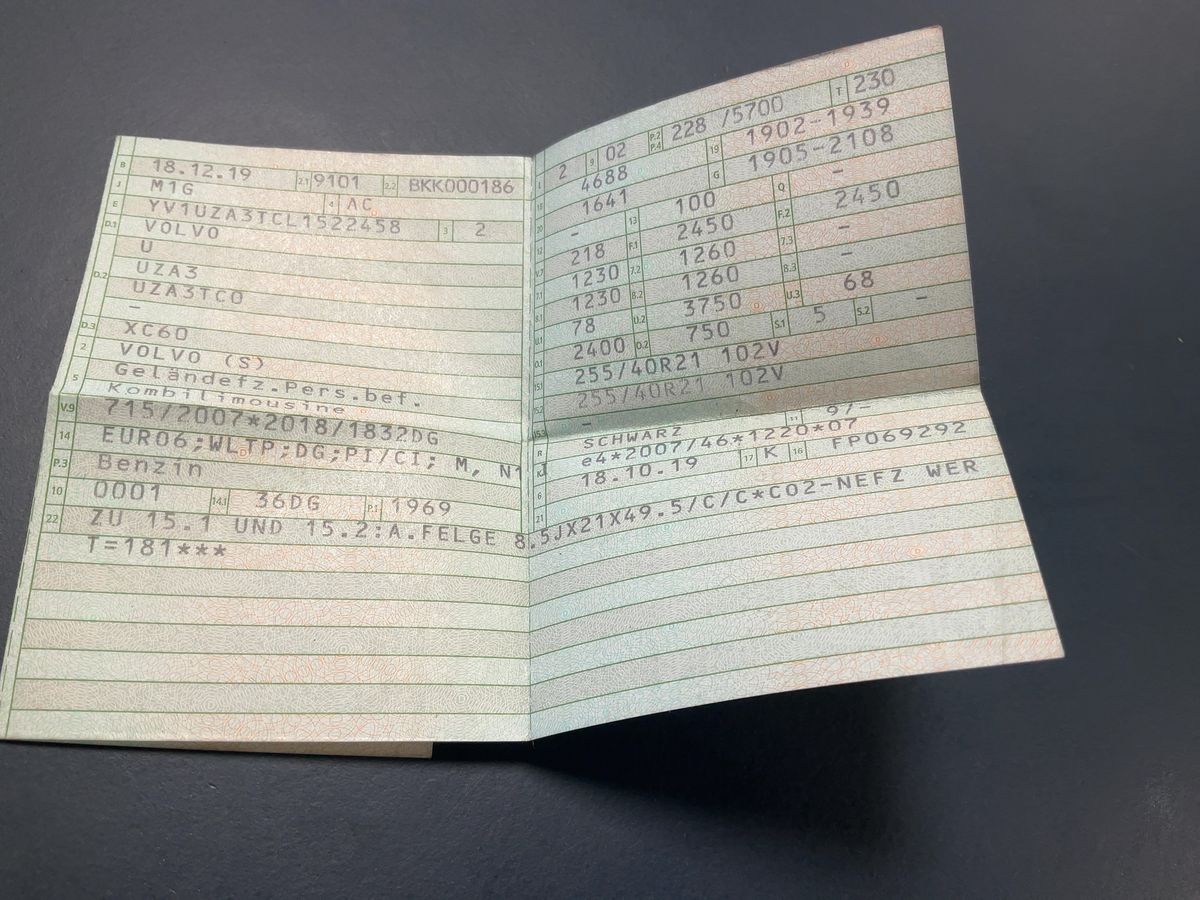 B 18.12.19 2.1 9101 2.2 BKK000186
J M1G 4 AC
E YV1UZA3TCL1522458 3 2
D.1 VOLVO
U
D.2 UZA3
UZA3TC0
–
D.3 XC60
2 VOLVO (S)
5 Geländefz.Pers.bef.
Kombilimousine
V.9 715/2007*2018/1832DG
14 EURO6;WLTP;DG;PI/CI; M, N1 I
P.3 Benzin
10 0001 14.1 36DG P.1 1969
L 2 9 02 P.2 P.4 228 /5700 T 230
18 4688 19 1902-1939
20 1641 G 1905-2108
12 – 13 100 Q –
V.7 218 F.1 2450 F.2 2450
7.1 1230 7.2 1260 7.3 –
8.1 1230 8.2 1260 8.3 –
U.1 78 U.2 3750 U.3 68
O.1 2400 O.2 750 S.1 5 S.2 –
15.1 255/40R21 102V
15.2 255/40R21 102V
15.3 –
R SCHWARZ 11 9/-
K e4*2007/46*1220*07
6 18.10.19 17 K 16 FP069292
21
22 ZU 15.1 UND 15.2:A.FELGE 8.5JX21X49.5/C/C*CO2-NEFZ WER
T=181***